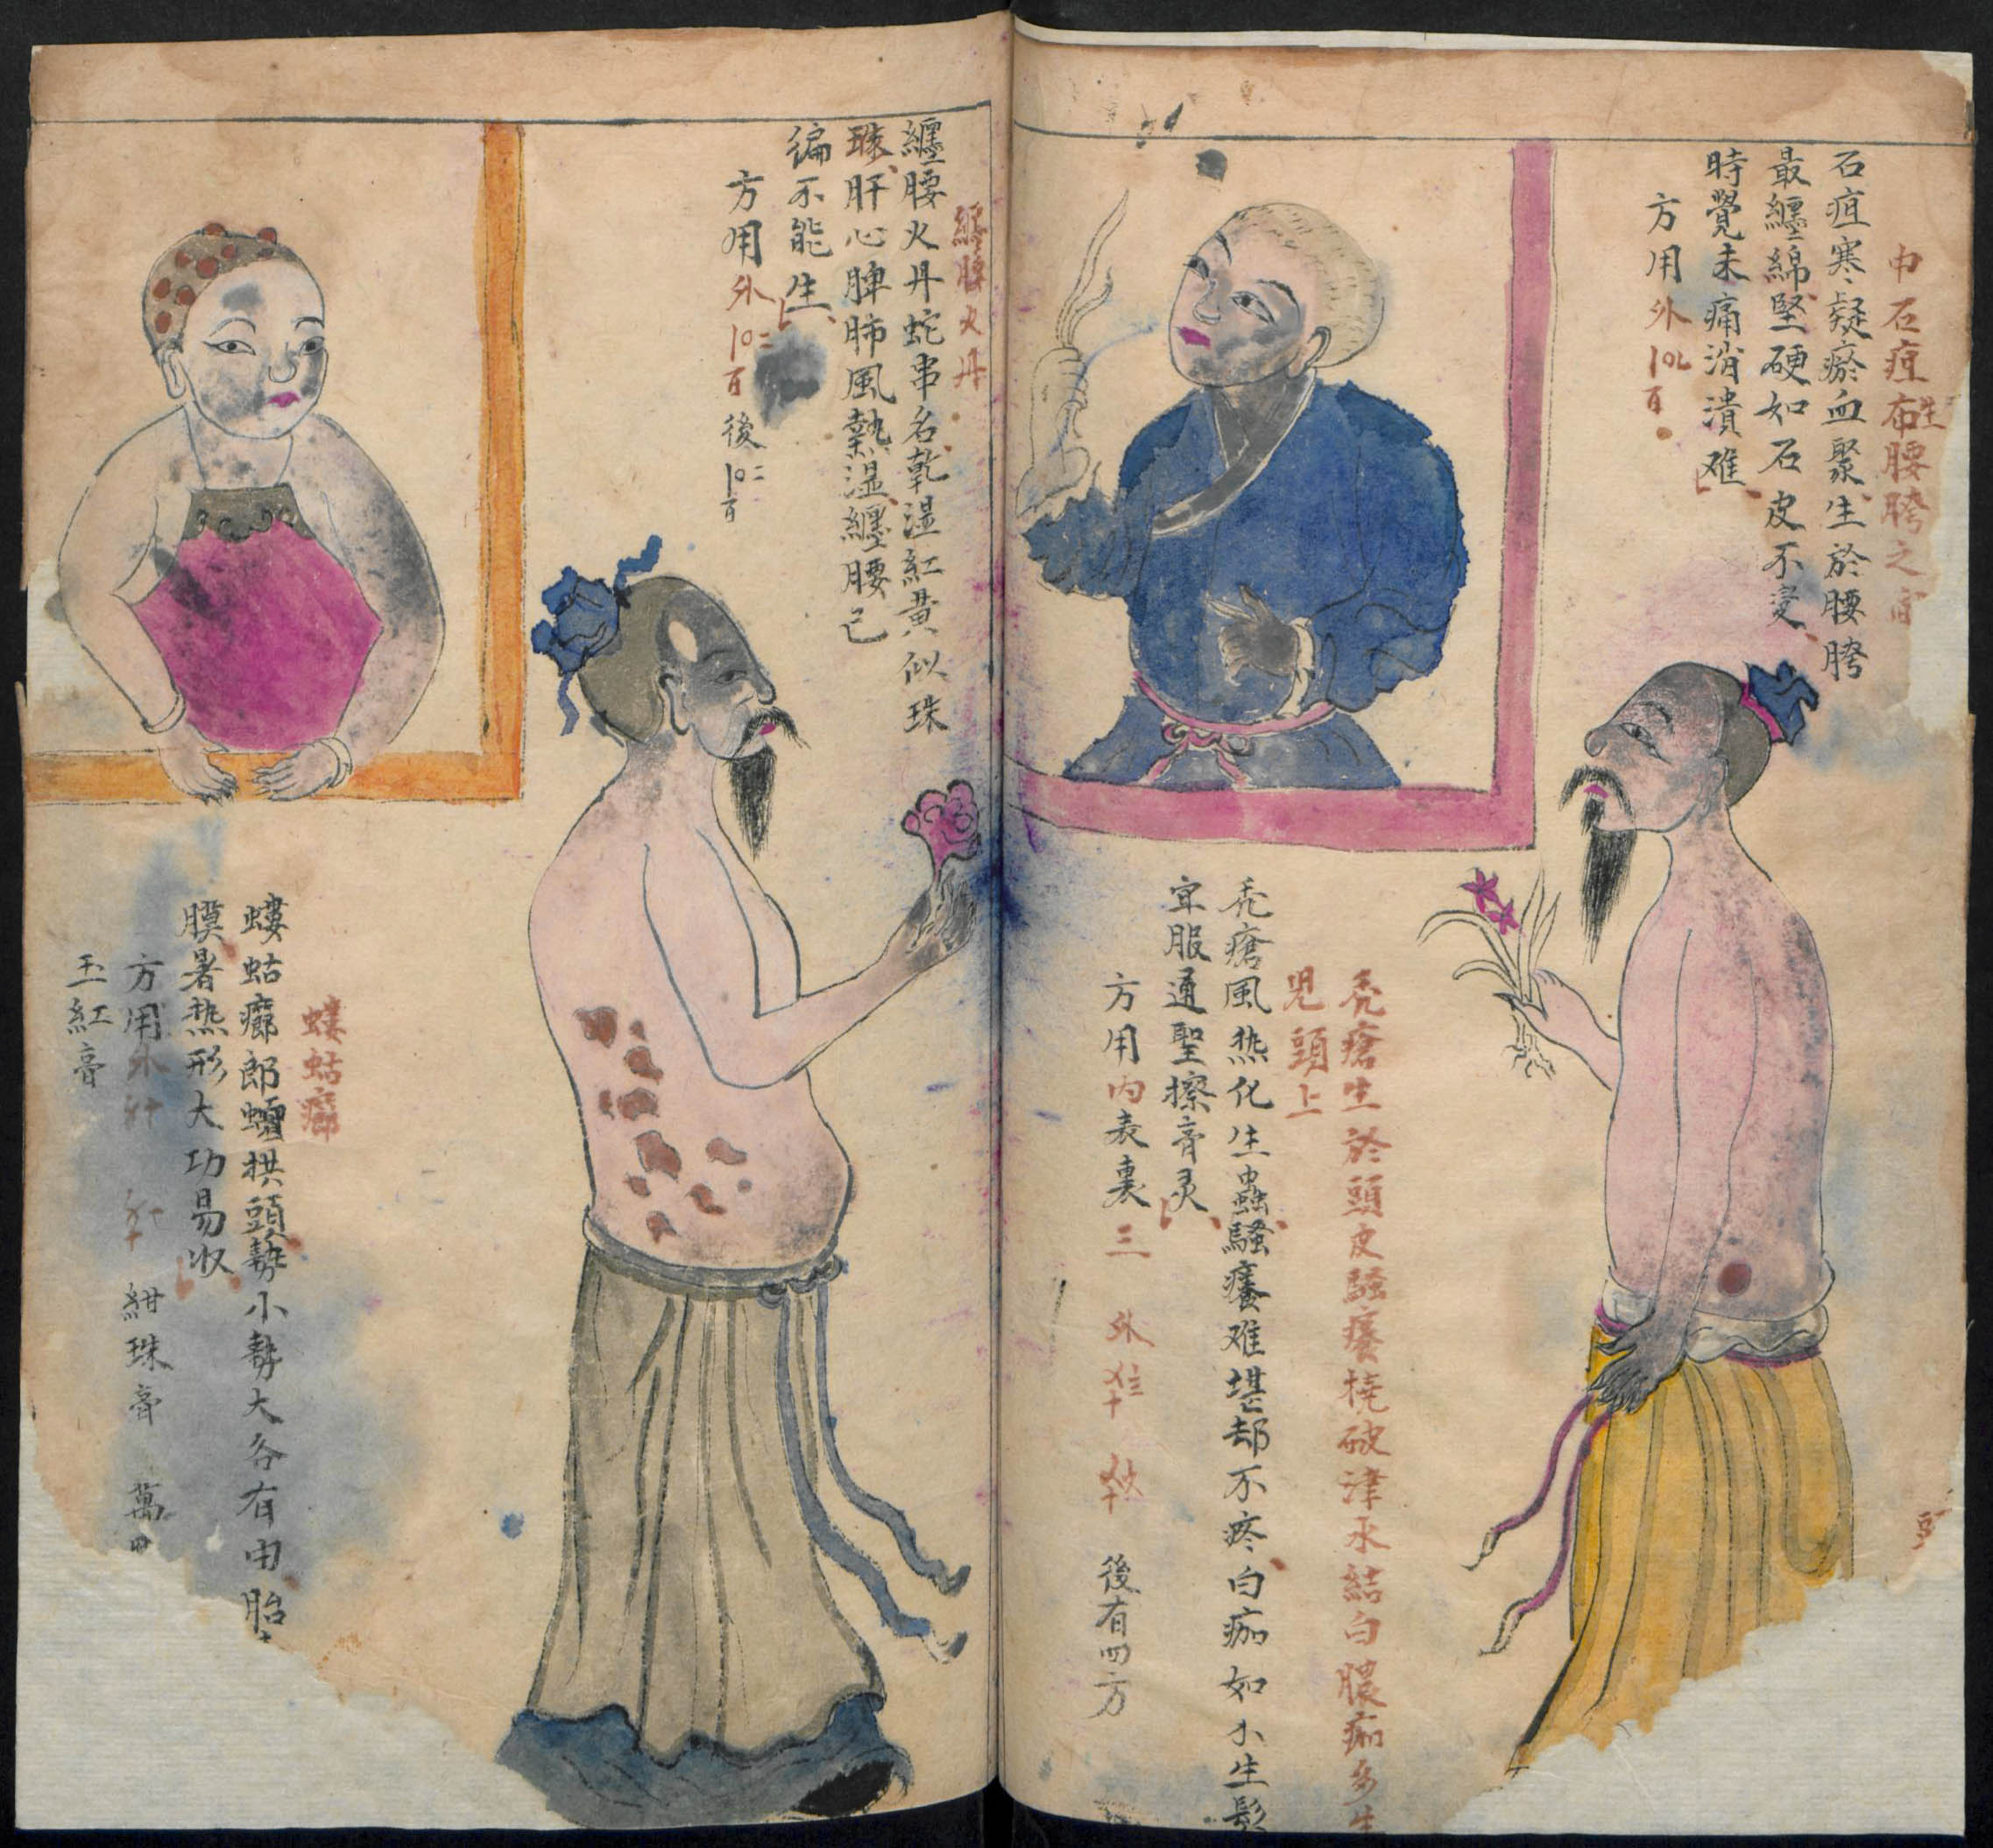 中石疽生布腰胯之
石疽寒疑瘀血聚生於腰胯
最纏綿堅硬如石皮不变
時覺木痛消潰难
方用外
百
秃瘡生於頭皮騷癢撓破津水結白膿痂多生
児頭上
秃瘡風热化生蟲騷癢难堪却不疼白痂如小生髮
宜服通聖擦膏灵
方用内表裏三 外 後有四方
纏腰火丹
纏腰火丹蛇串名乾湿紅黃似珠
珠肝心脾肺風熱湿纏腰已
徧不能生
方用外 百 後 百
螻蛄癤
螻蛄癤郎蟮拱頭勢小勢大各有由胎
膜暑热形大功易收
方用外 紺珠膏 萬
玉紅膏